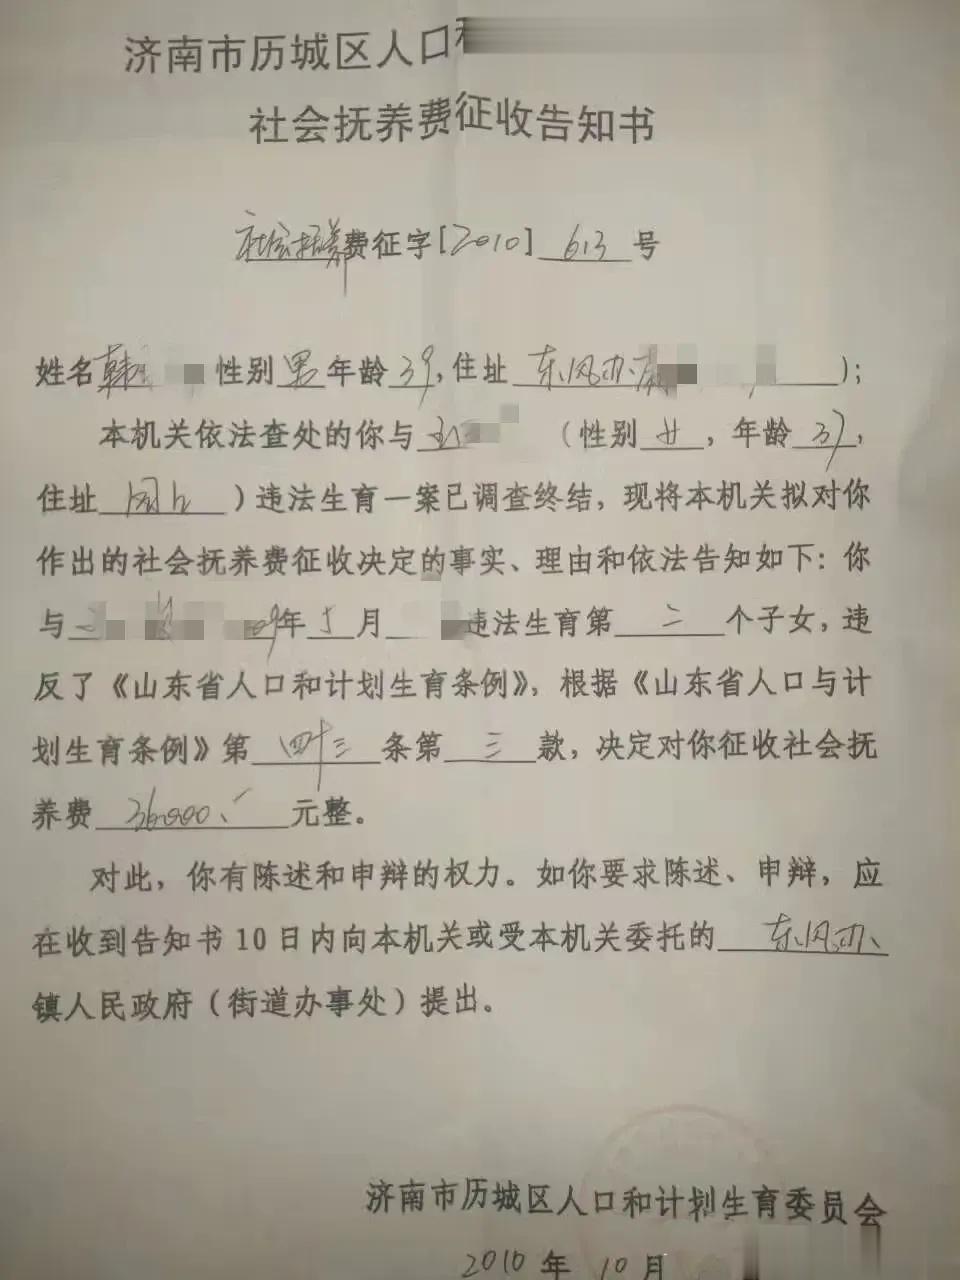 济南市历城区人口和
社会抚养费征收告知书
社会抚养费征字[2010] 613 号
姓名韩 性别男年龄39,住址 东风办 );
本机关依法查处的你与 (性别 女,年龄 37,
住址 同上 )违法生育一案已调查终结，现将本机关拟对你
作出的社会抚养费征收决定的事实、理由和依法告知如下：你
与 09年5月 违法生育第 二 个子女，违
反了《山东省人口和计划生育条例》，根据《山东省人口与计
划生育条例》第 四十三 条第 三 款，决定对你征收社会抚
养费 36000、 元整。
对此，你有陈述和申辩的权力。如你要求陈述、申辩，应
在收到告知书10日内向本机关或受本机关委托的 东风办
镇人民政府（街道办事处）提出。
济南市历城区人口和计划生育委员会
2010 年 10 月